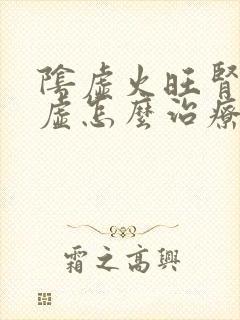 陰虛火旺腎
虛怎麼治療
霜之高興